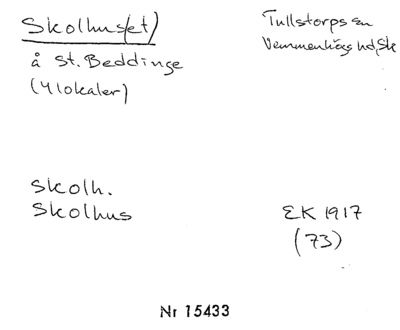 Skolhus(et)
å St. Beddinge
(4 lokaler)
Tullstorps sn
Vemmenhögs hd, Sk
Skolh.
Skolhus
EK 1917
(73)
Nr 15433